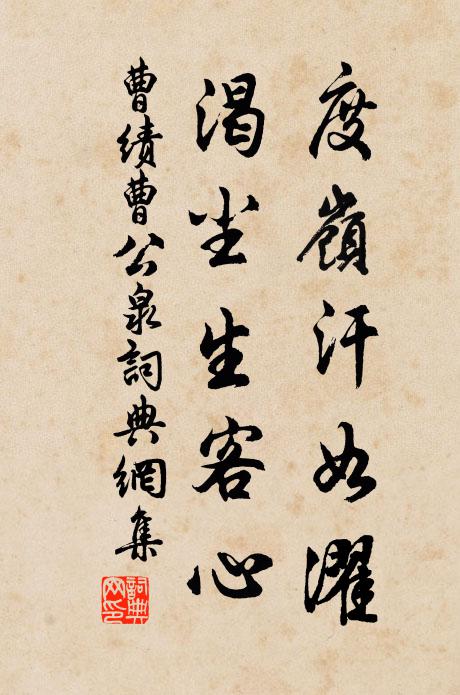 度嶺汗如濯
渴尘生客心
曹績曹公泉詞典網集
詞典
网印